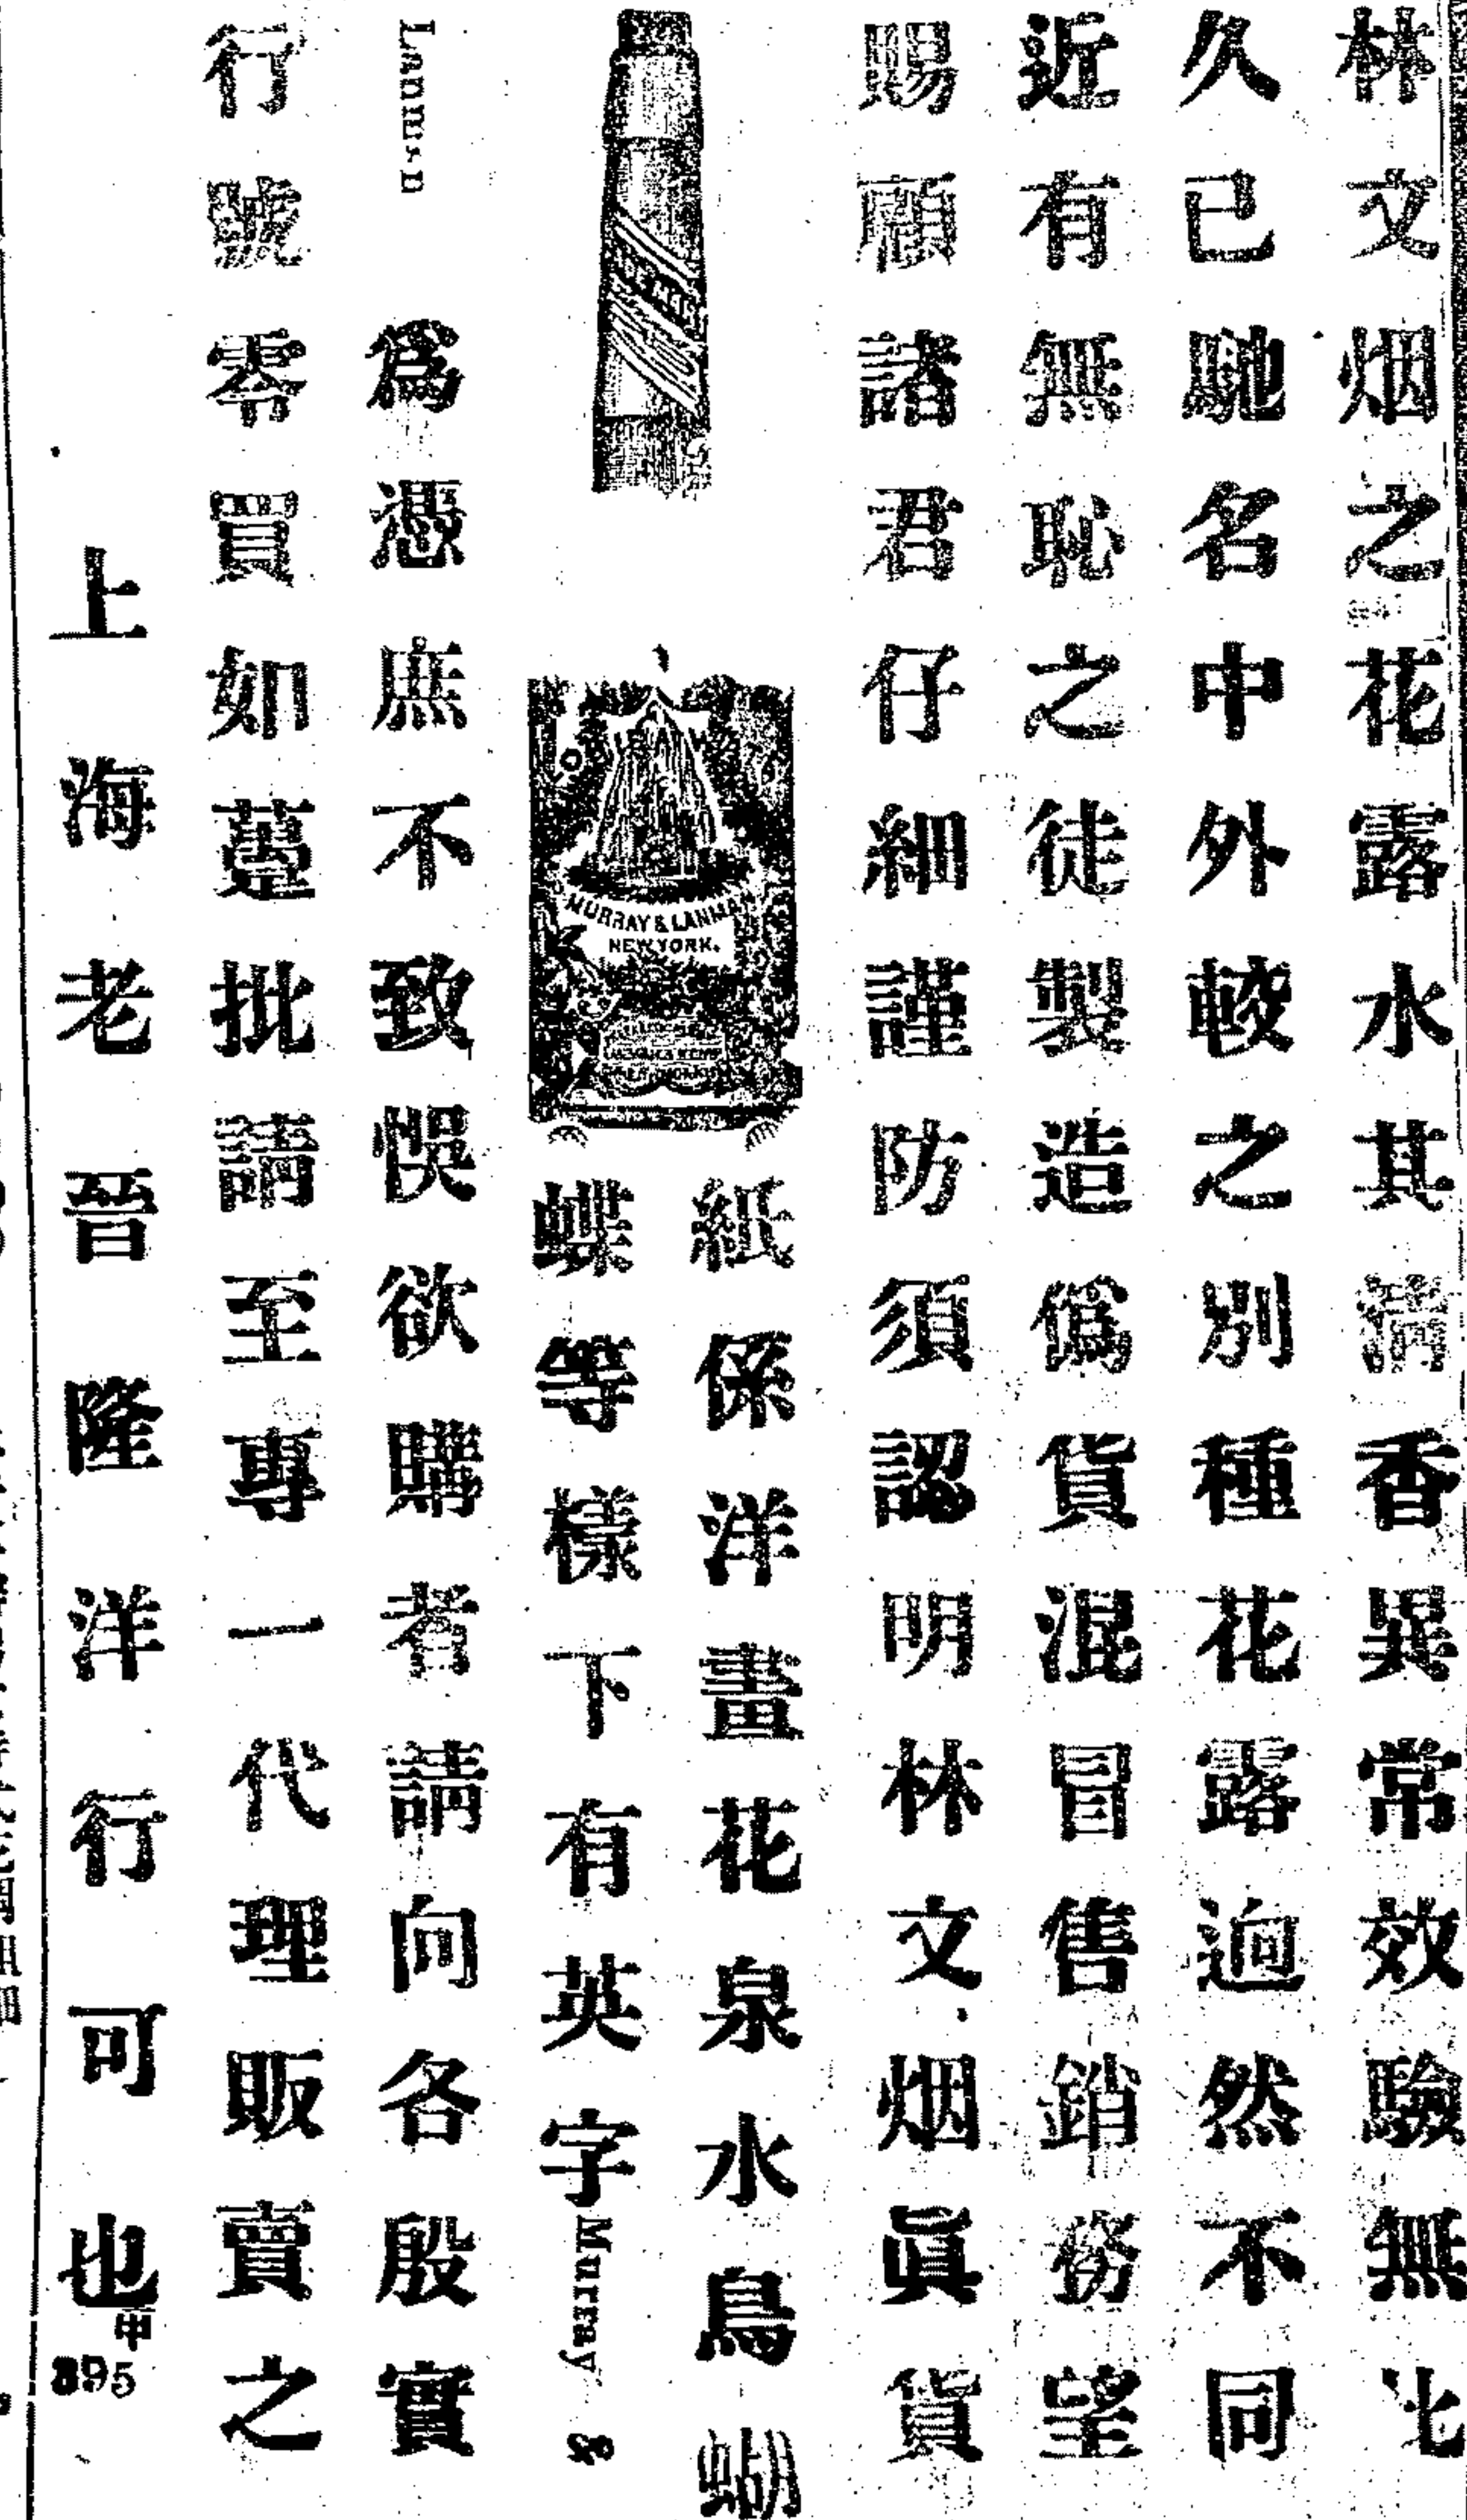 林文烟之花露水其清香異常效驗無比
久已馳名中外較之別種花露逈然不同
近有無恥之徒製造僞貨混冒售銷務望
賜顧諸君仔細謹防須認明林文烟眞貨
MURRAY & LANMAN
NEW YORK.
紙係洋畫花泉水鳥蝴
蝶等樣下有英字Murray &
Lanman 爲憑庶不致悞欲購者請向各殷實
行號零買如躉批請至專一代理販賣之
上海老晉隆洋行可也
395